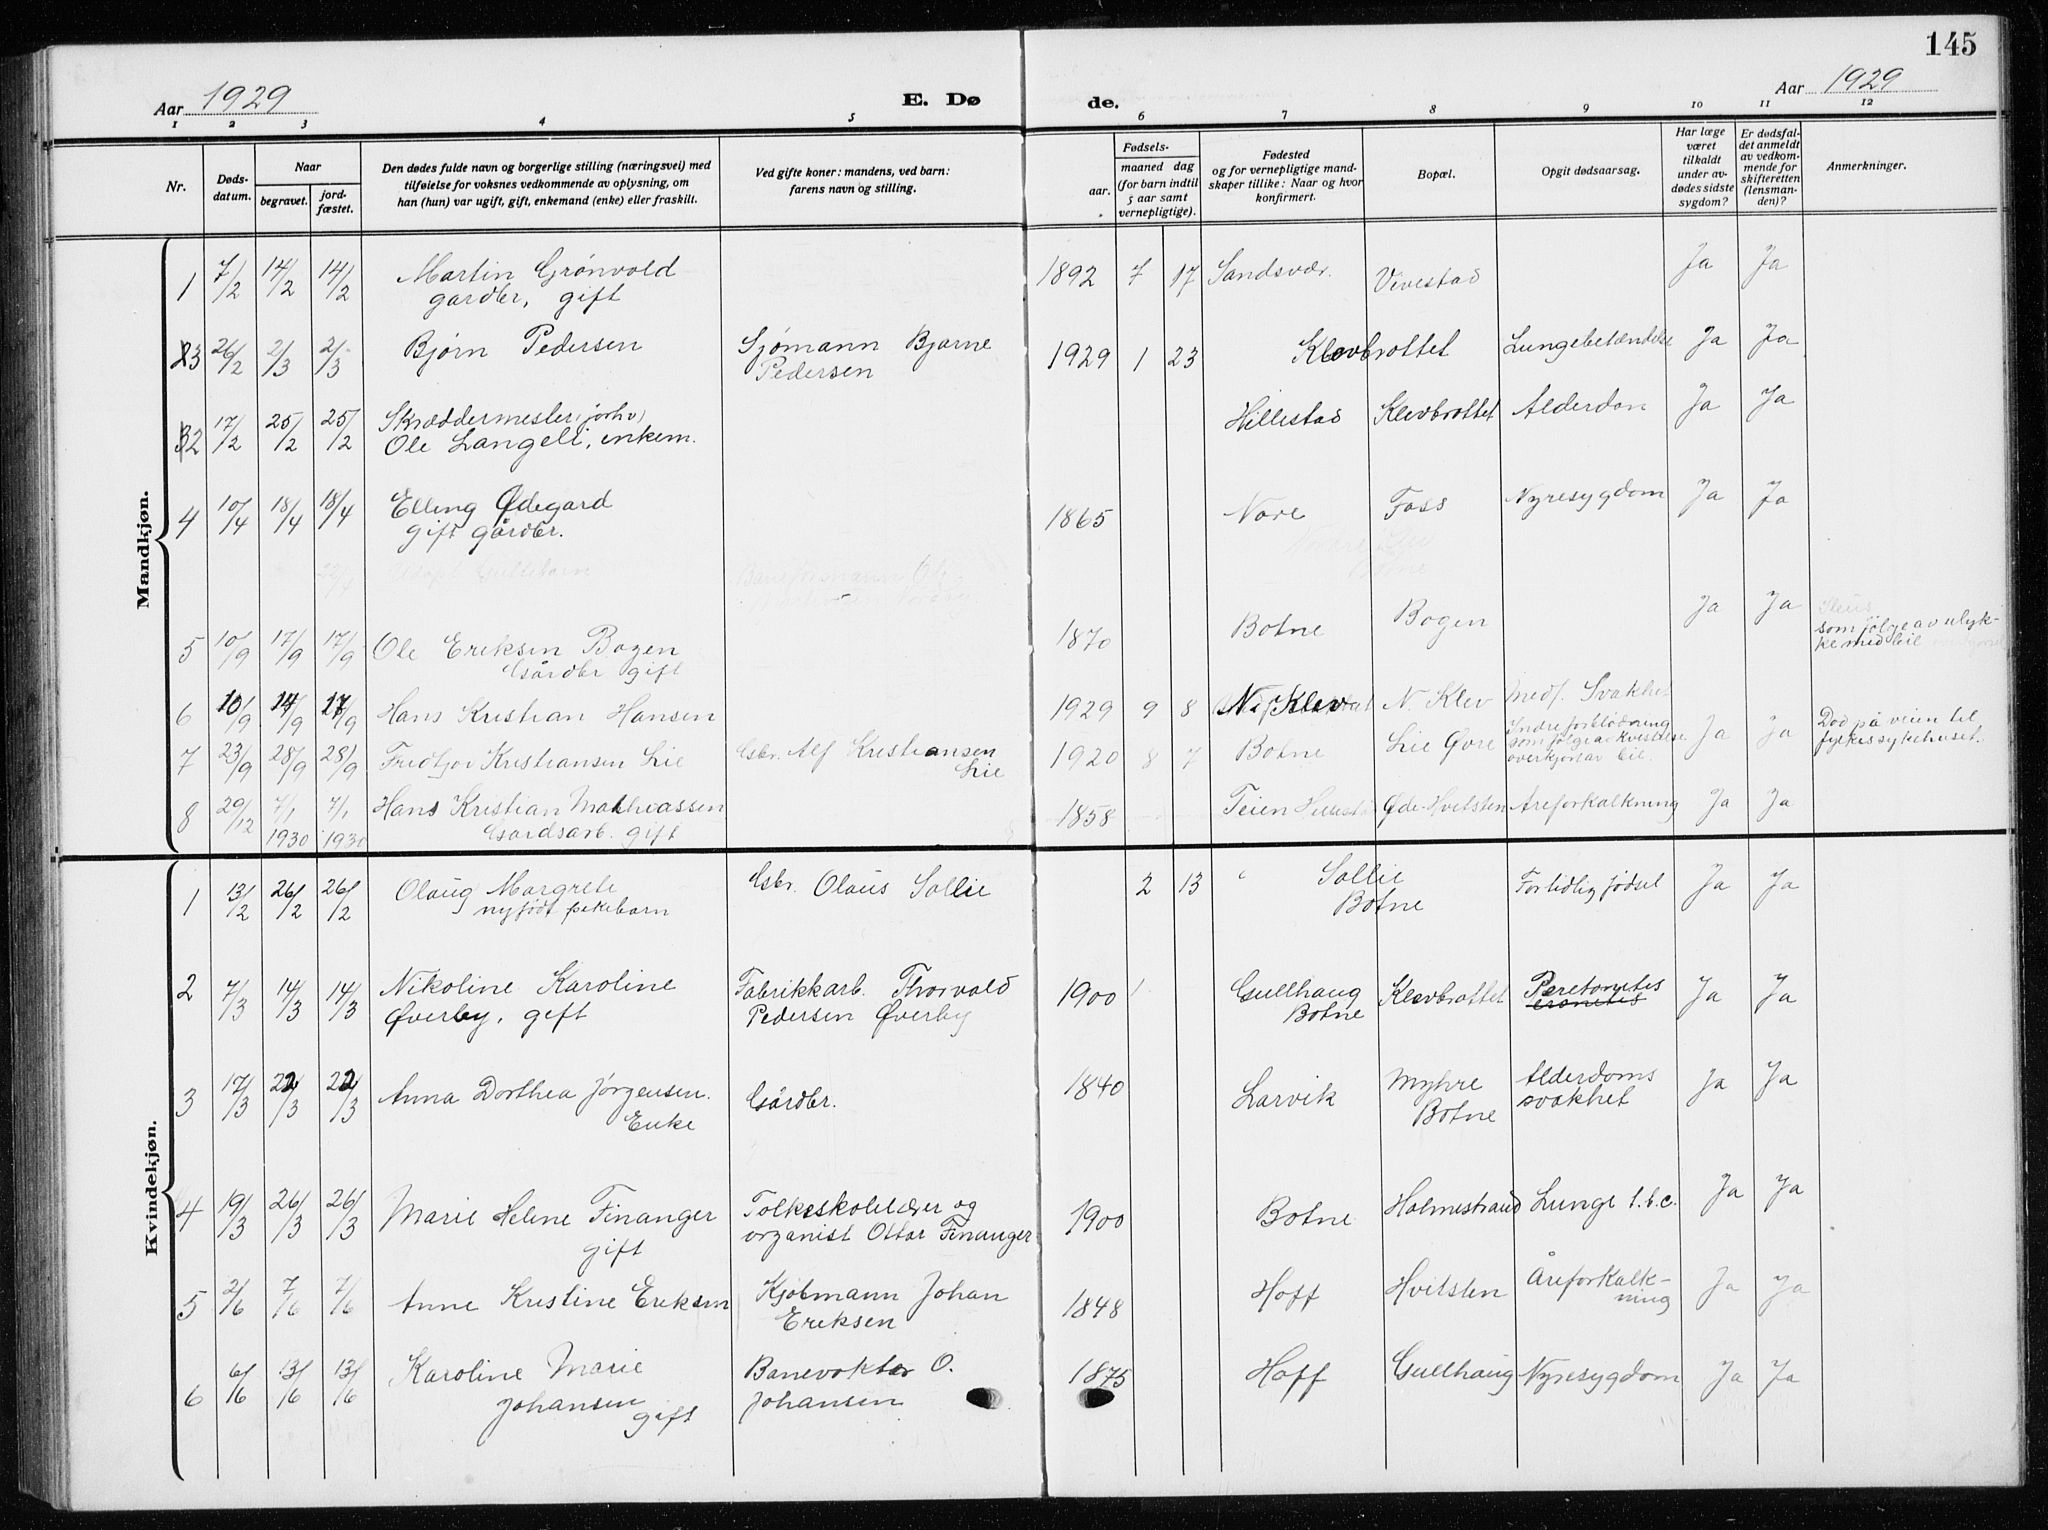 145
Aar 1929
E. Dø
de.
Aar 1929
1 2 3 4 5 6 7 8 9 10 11 12
Nr.
Døds-
datum.
Naar
begravet.
jord-
fæstet.
Den dødes fulde navn og borgerlige stilling (næringsvei) med
tilføielse for voksnes vedkommende av oplysning, om
han (hun) var ugift, gift, enkemand (enke) eller fraskilt.
Ved gifte koner: mandens, ved barn:
farens navn og stilling.
Fødsels-
aar.
maaned dag
(for barn indtil
5 aar samt
vernepligtige).
Fødested
og for vernepligtige mand-
skaper tillike: Naar og hvor
konfirmert.
Bopæl.
Opgit dødsaarsag.
Har læge
været
tilkaldt
under av-
dødes sidste
sygdom?
Er dødsfal-
det anmeldt
av vedkom-
mende for
skifteretten
(lensman-
den)?
Anmerkninger.
Mandkjøn.
1 7/2 14/2 14/2 Martin Grønvold 1892 7 17 Sandsvær. Vivestad Ja Ja
gardbr, gift
3 26/2 2/3 2/3 Bjørn Pedersen Sjømann Bjarne 1929 1 23 Klevbrottet Lungebetændelse Ja Ja
Pedersen
2 17/2 25/2 25/2 Skræddermester (forhv) Hillestad Klevbrottet Alderdom Ja Ja
Ole Langeli, enkem.
4 10/4 18/4 18/4 Elling Ødegard 1865 Nore Foss Nyresygdom Ja Ja
gift gårdbr.
22/4
Botne
5 10/9 17/9 17/9 Ole Eriksen Bogen 1870 Botne Bogen Ja Ja
Gårdbr gift
som følge av ulyk-
ke med bil
6 10/9 14/9 17/9 Hans Kristian Hansen 1929 9 8 N. Klev N. Klev Medf. Svakhet
7 23/9 28/9 28/9 Fridtjov Kristiansen Lie Gbr. Alf Kristiansen 1920 8 7 Botne Lie Gvre Indre forblødning Ja Ja Død på veien til
Lie
som følge av kvestelse
overkjørt av bil.
fylkessykehuset.
8 29/12 7/1 7/1 Hans Kristian Mathiassen 1858 Teien Hillestad Øde-Hvitsten Åreforkalkning Ja Ja
1930 1930 Gårdsarb. gift
Kvindekjøn.
1 13/2 26/2 26/2 Olaug Margrete Gbr. Olaus Sollie 2 13 Sollie Fortidlig fødsel Ja Ja
nyfødt pikebarn Botne
2 7/3 14/3 14/3 Nikoline Karoline Fabrikkarb. Thorvald 1900 Gullhaug Klevbrottet Peretonetis Ja Ja
Øverby, gift Pedersen Øverby Botne
3 17/3 22/3 22/3 Anna Dorthea Jørgensen. Gårdbr. 1840 Larvik Myhre Alderdoms Ja Ja
Enke Botne svakhet
4 19/3 26/3 26/3 Marie Helene Finanger Folkeskolelærer og 1900 Botne Holmestrand Lunge t.b.c. Ja Ja
gift organist Ottar Finanger
5 2/6 7/6 7/6 Anne Kristine Eriksen Kjøbmann Johan 1848 Hoff Hvitsten Åreforkalk- Ja Ja
Eriksen ning
6 6/6 13/6 13/6 Karoline Marie Banevokter O. 1875 Hoff Gullhaug Nyresygdom Ja Ja
Johansen Johansen
gift